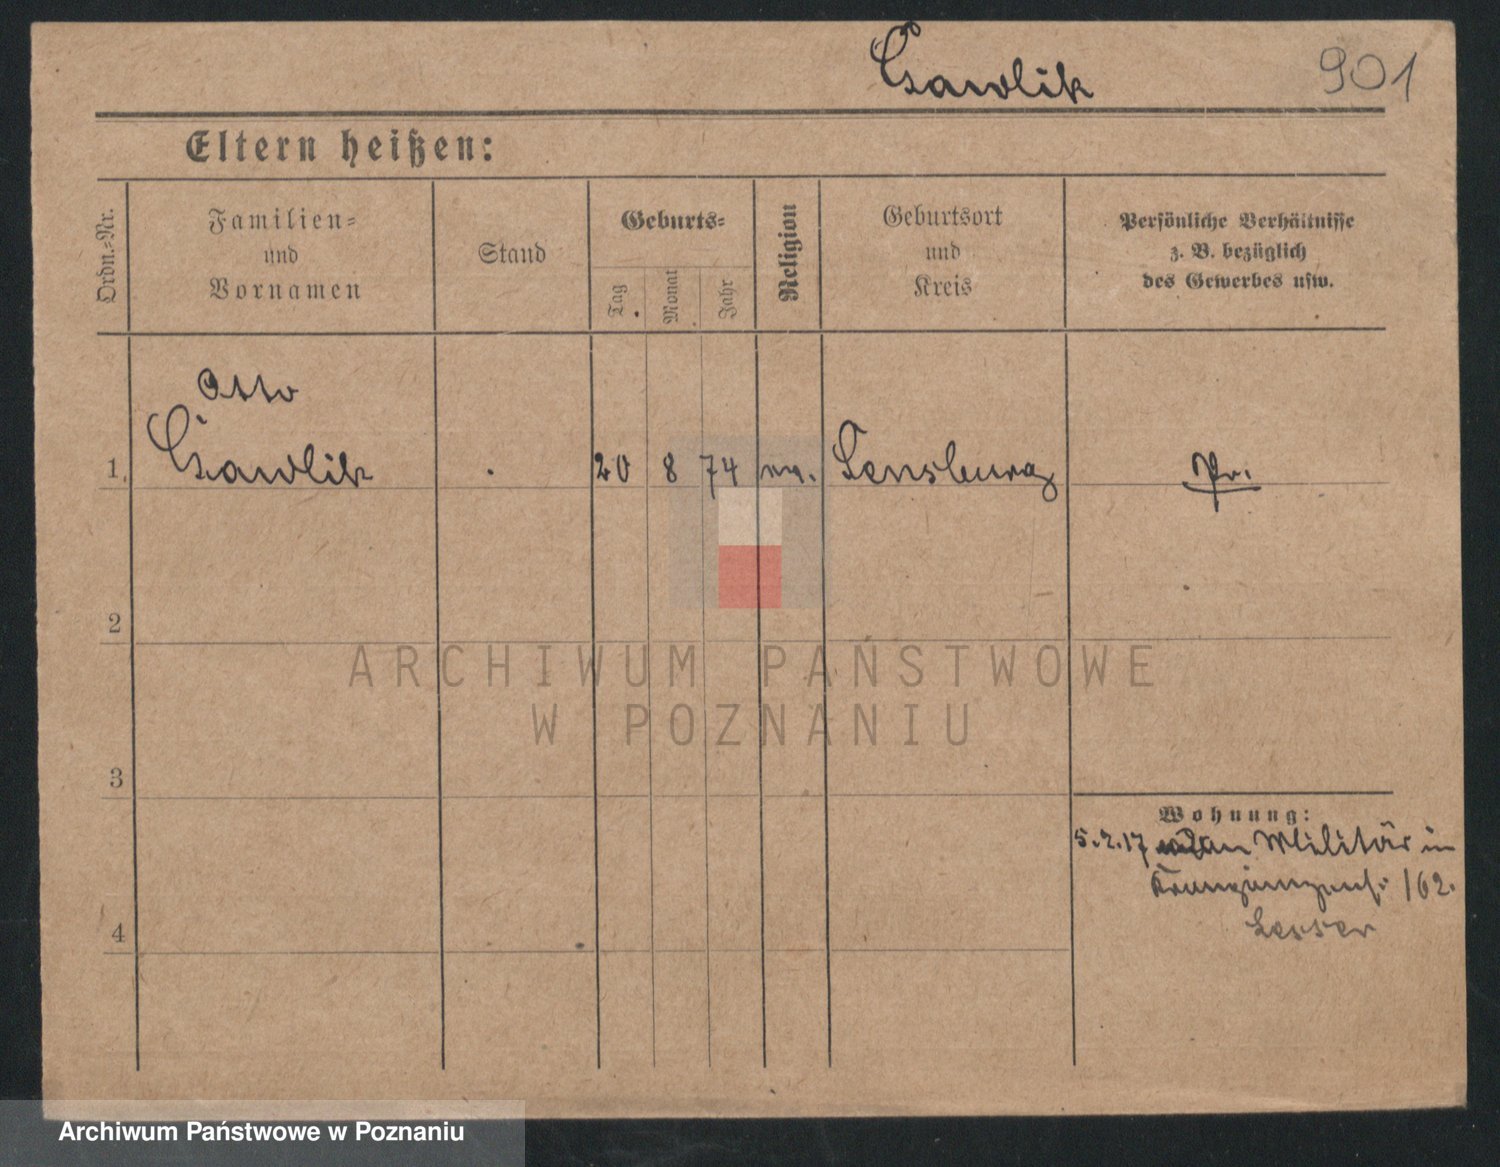 Czawlik
901
Eltern heißen:
Ordn.=Nr.
Familien=
und
Vornamen
Stand
Geburts=
Tag
Monat
Jahr
Religion
Geburtsort
und
Kreis
Persönliche Verhältnisse
z. B. bezüglich
des Gewerbes usw.
Otto
1. Czawlik 20 8 74 ev. Sensburg Pr.
2
ARCHIWUM PAŃSTWOWE
W POZNANIU
3
Wohnung:
5.2.17 an Militär in
162.
4
Lesser
Archiwum Państwowe w Poznaniu